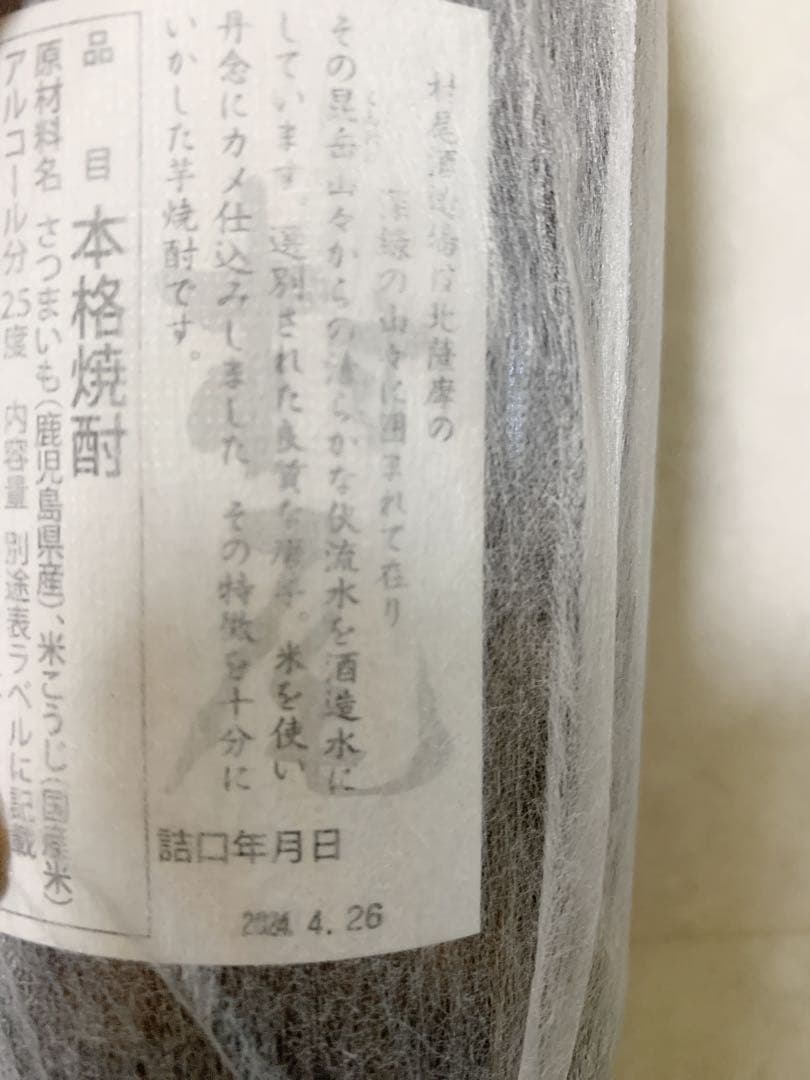 村尾酒造場は北薩摩の
深緑の山々に囲まれて在り
その昆岳山々からの清らかな伏流水を酒造水に
しています。選別された良質な唐芋。米を使い
丹念にカメ仕込みしました。その特徴を十分に
いかした芋焼酎です。
詰口年月日
2024. 4. 26
品目 本格焼酎
原材料名 さつまいも(鹿児島県産)、米こうじ(国産米)
アルコール分 25度 内容量 別途表ラベルに記載